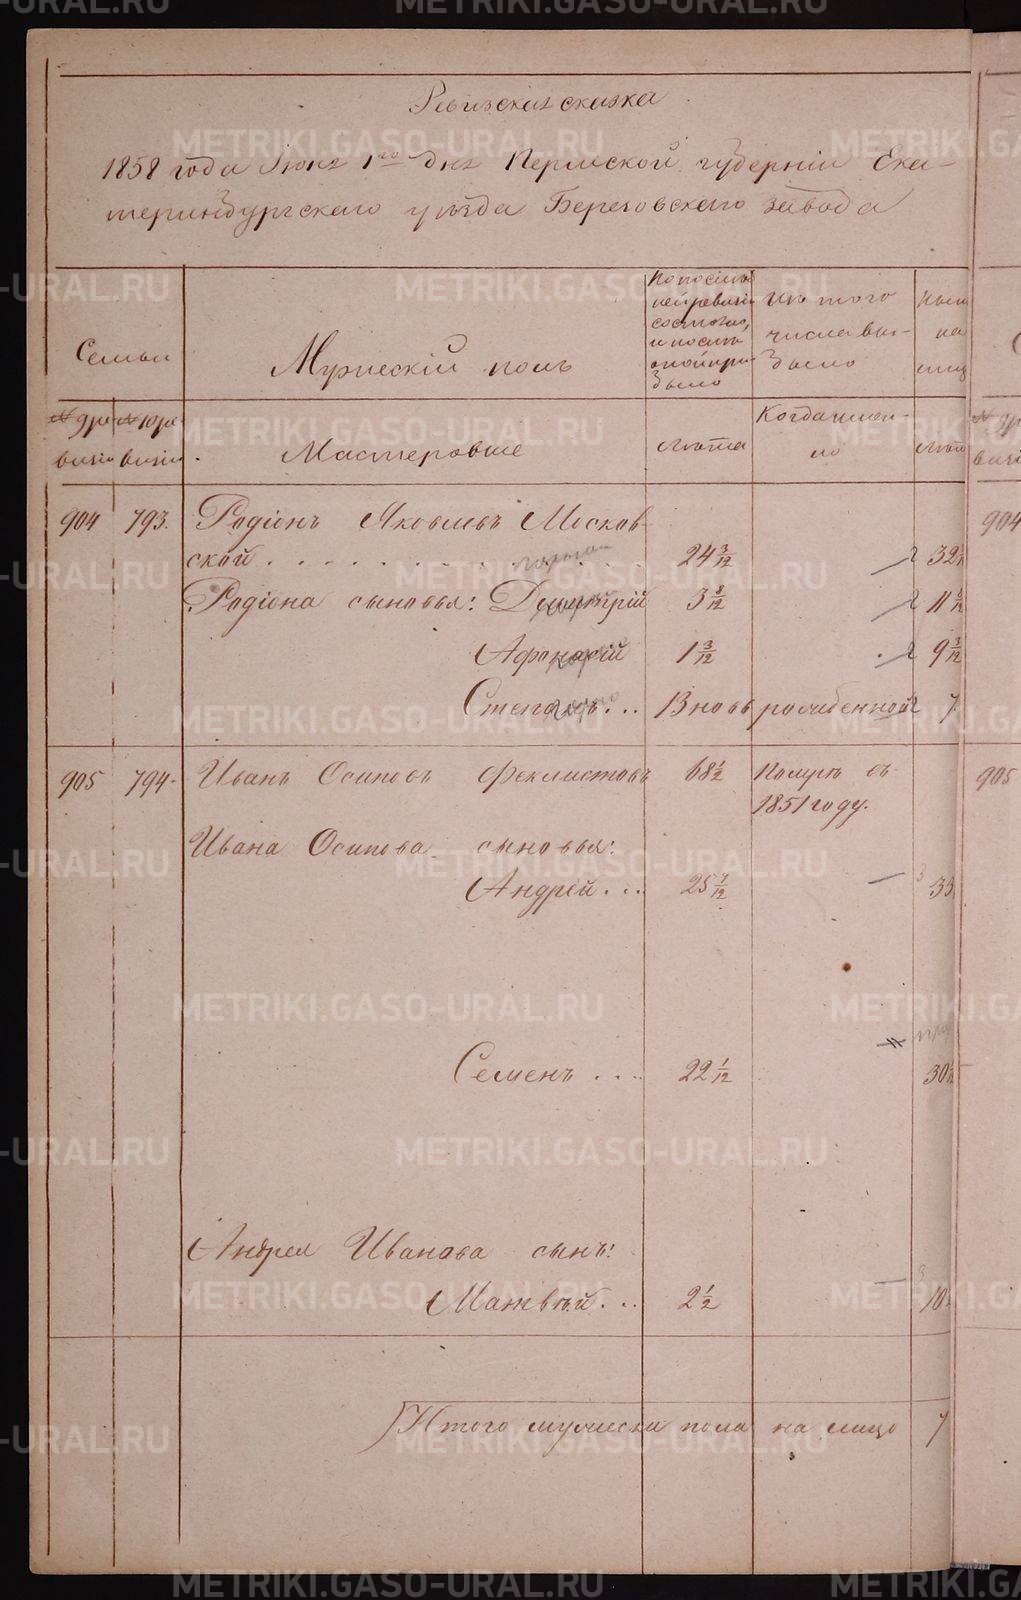 Ревизская сказка
1858 года Іюня 1го дня Пермской губерніи Ека-
теринбургскаго уѣзда Березовскаго завода
Семьи
Мужескій полъ
По послѣд
ней ревизіи
состояло,
и послѣ
оной при
было
Изъ того
числа вы-
было
Ныне
на
лиц
№ 9 ре
визіи
№ 10 ре
визіи
Мастеровые
лѣта
Когда имен-
но
лѣта
904 793. Родіонъ Яковлевъ Москов-
ской 24 3/12 32
Родіона сыновья: Дмитрій 3 8/12 11
Афонасій 1 3/12 9 3/12
Степанъ... Вновь рожденной 7
905 794. Иванъ Осиповъ Феклистовъ 68 1/2 Померъ въ
1851 году.
Ивана Осипова сыновья:
Андрей... 25 7/12 33
Семенъ... 22 1/12 30
Андрея Иванова сынъ:
Матвѣй... 2 1/2 10
Итого мужеска пола на лицо 7
904
905
METRIKI.GASO-URAL.RU